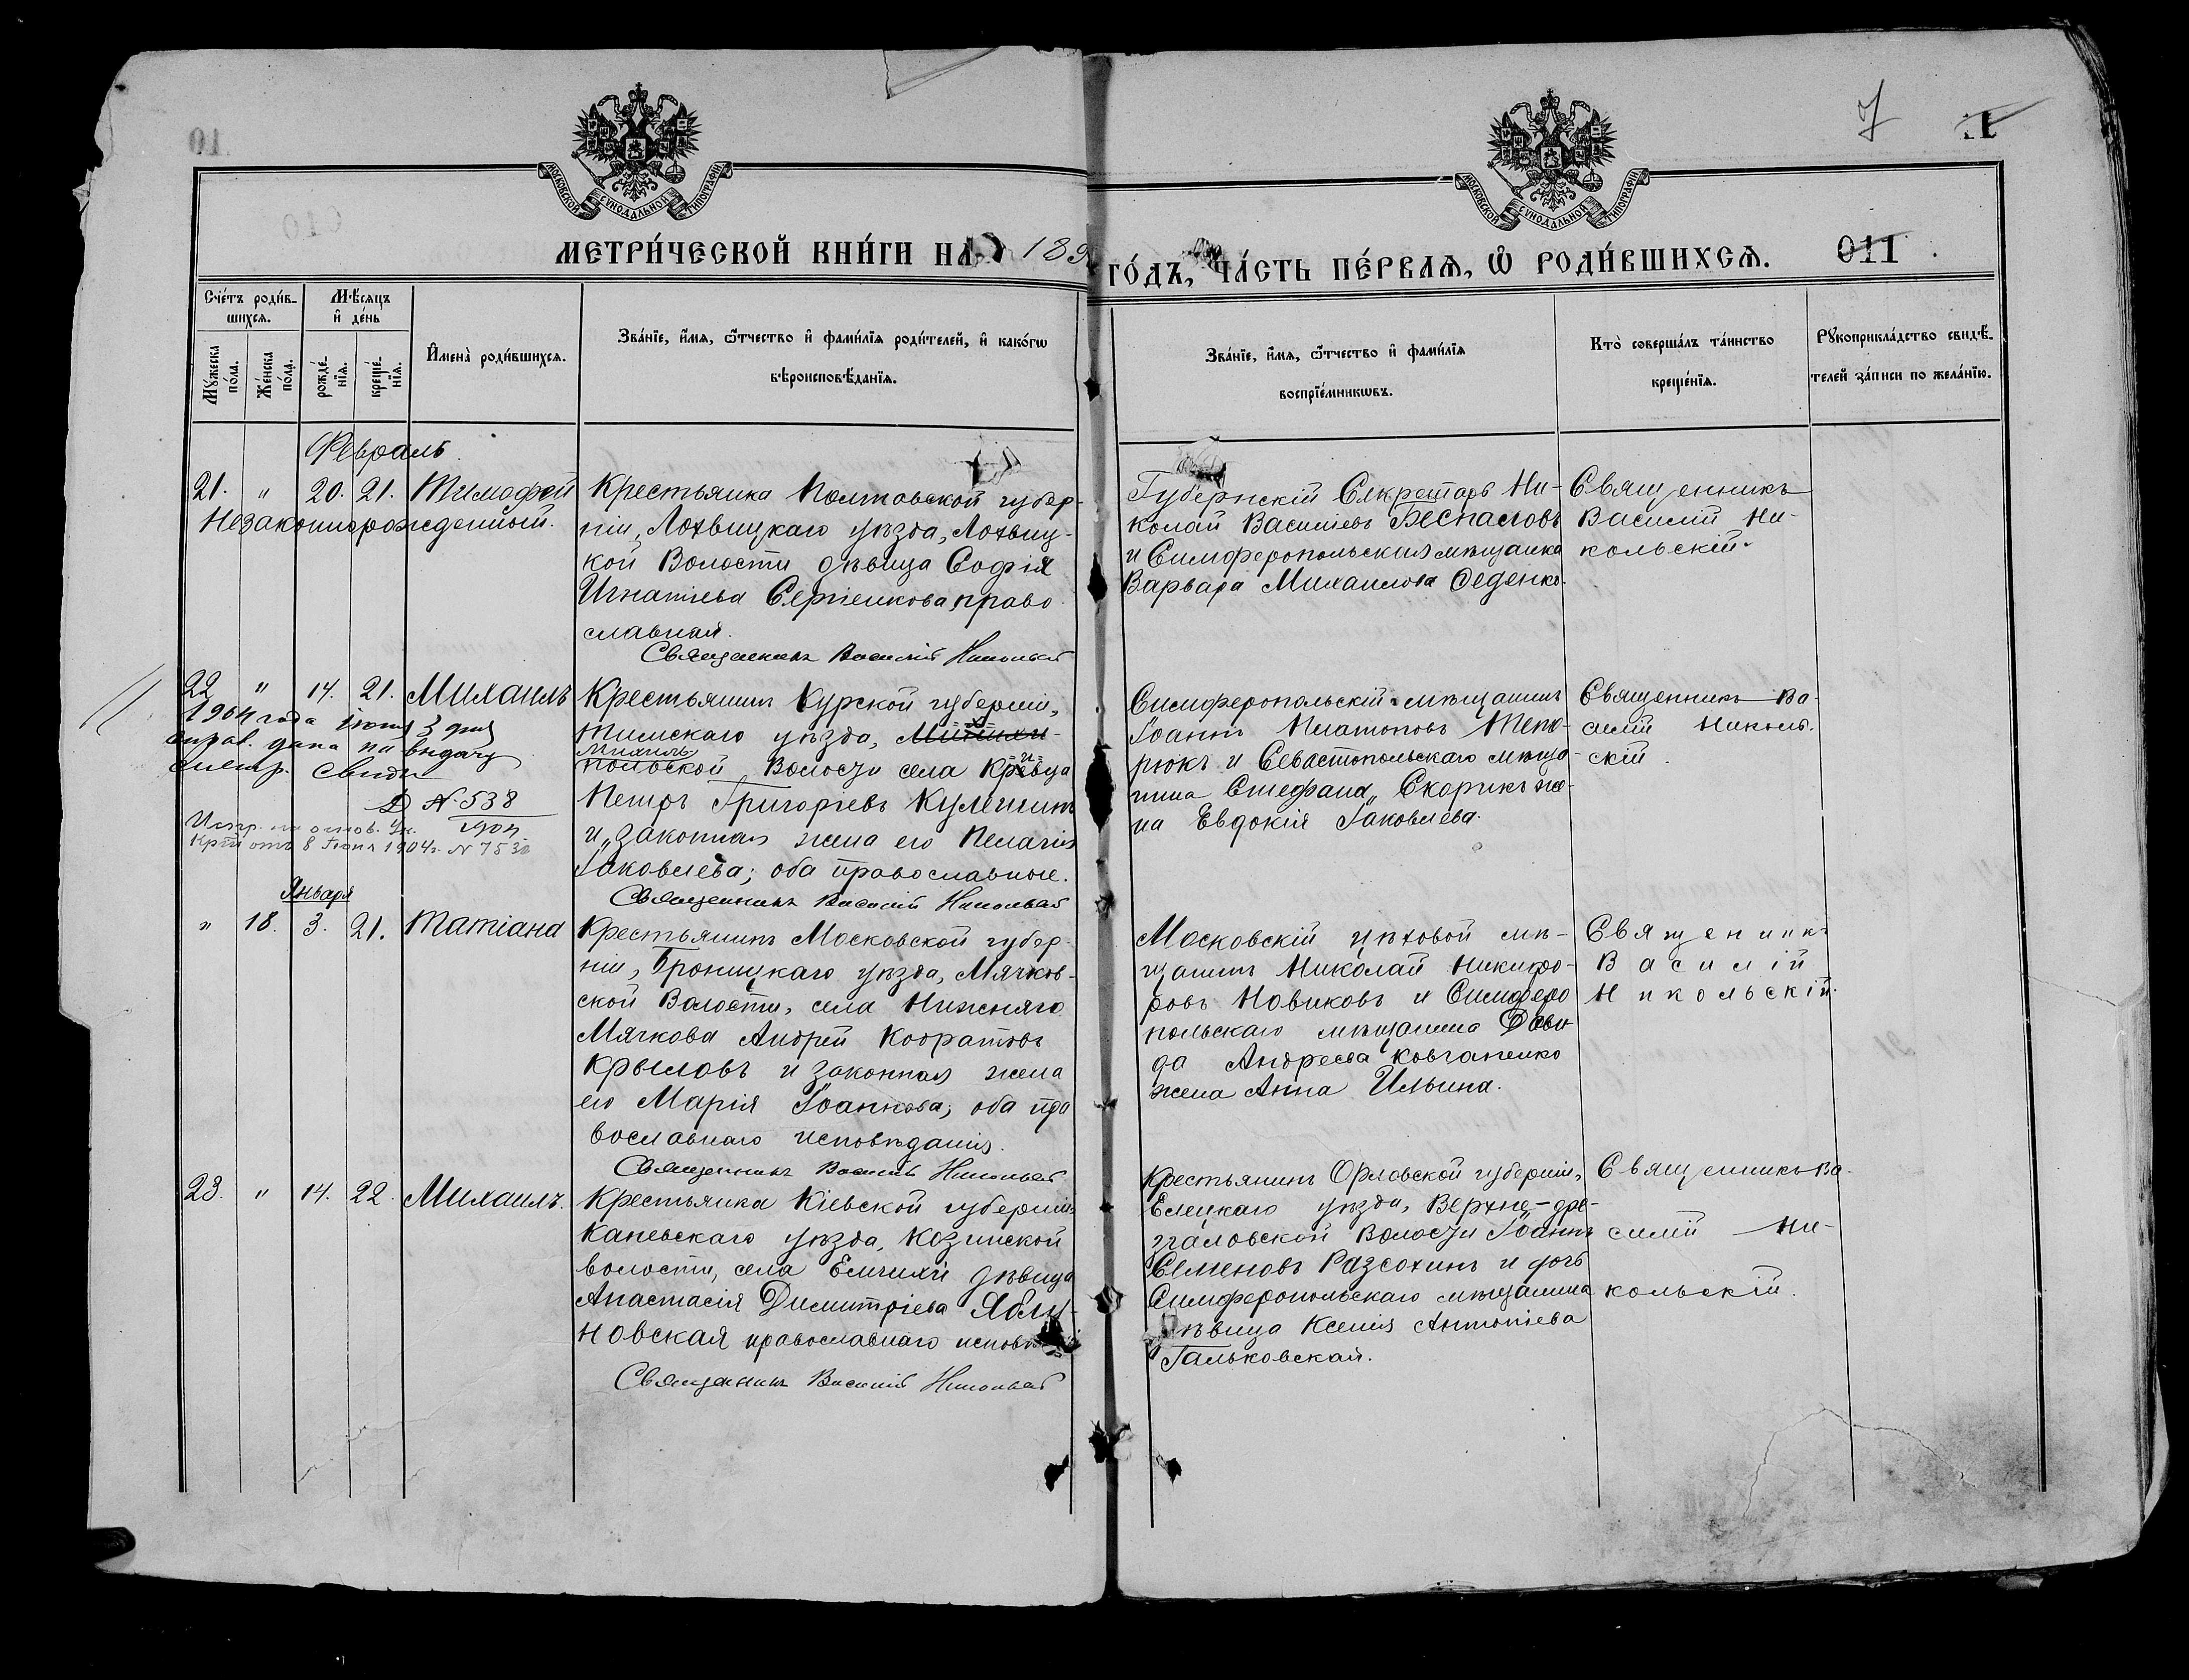 10
7
11
МОСКОВСКОЙ СУНОДАЛЬНОЙ ТИПОГРАФІИ
МОСКОВСКОЙ СУНОДАЛЬНОЙ ТИПОГРАФІИ
010
МЕТРИ́ЧЕСКОЙ КНИ́ГИ НА 189
ГО́ДЪ, ЧА́СТЬ ПЕ́РВАѦ, Ѽ РОДИ́ВШИХСѦ. 011
Сче́тъ роди́в-
шихсѧ.
Мѣ́сѧцъ
и҆ де́нь
Мꙋ́жеска
по́ла.
Же́нска
по́ла.
рожде́-
нїѧ.
креще́-
нїѧ.
И҆мена̀ роди́вшихсѧ.
Зва́нїе, и҆́мѧ, ѻ҆́тчество и҆ фамѵ́лїѧ роди́телей, и҆ како́гѡ
вѣроисповѣ́данїѧ.
Зва́нїе, и҆́мѧ, ѻ҆́тчество и҆ фамѵ́лїѧ
воспрїе́мникѡвъ.
Кто̀ соверша́лъ та́инство
креще́нїѧ.
Рꙋкоприкла́дство свидѣ́-
телей за́писи по жела́нїю.
Февраль
21. " 20. 21. Тимофей
Незаконнорожденный.
Крестьянка Полтавской губер-
ніи, Лохвицкаго уѣзда, Лохвиц-
кой Волости дѣвица Софія
Игнатіева Сергіенкова, право
славная.
Священникъ Василій Никольскій
Губернскій Секретарь Ни-
колай Василіевъ Беспаловъ
и Симферопольская мѣщанка
Варвара Михаилова Феденко.
Священникъ
Василій Ни-
кольскій.
22 " 14. 21. Михаилъ
1904 года іюня 3 дня
справ. дана на выдачу
метр. свид.
№ 538
1904
Испр. на основ. Ук.
отъ 8 Іюня 1904г. №
Крестьянинъ Курской губерніи,
Тимскаго уѣзда,
польской Волости села Кривца
Петръ Григоріевъ Кулешинъ
и законная жена его Пелагія
Іаковлева; оба православные.
Священникъ Василій Никольскій
Симферопольскій мѣщанинъ
Іоаннъ Платоновъ Тепо-
рюкъ и Севастопольскаго мѣща-
нина Стефана Скорикъ же-
на Евдокія Іаковлева.
Священникъ Ва-
силій Николь-
скій.
Января
" 18. 3. 21. Татіана
Крестьянинъ Московской губер-
ніи, Бронницкаго уѣзда, Мячков-
ской Волости, села Нижняго
Мячкова Андрей Кодратовъ
Крыловъ и законная жена
его Марія Іоаннова; оба пра
вославнаго исповѣданія.
Священникъ Василій Никольскій
Московскій цѣховой мѣ-
щанинъ Николай Никифо-
ровъ Новиковъ и Симферо
польскаго мѣщанина Дави-
да Андреева Ковганенко
жена Анна Ильина.
Священникъ
Василій
Никольскій.
23. " 14. 22. Михаилъ.
Крестьянка Кіевской губерніи,
Каневскаго уѣзда, Козинской
волости, села Емчихи дѣвица
Анастасія Димитріева Яблу-
новская православнаго исповѣ
Священникъ Василій Никольскій
Крестьянинъ Орловской губерніи,
Елецкаго уѣзда, Верхне-дре-
згаловской Волости Іоаннъ
Семеновъ Разсохинъ и дочь
Симферопольскаго мѣщанина
дѣвица Ксенія Антоніева
Гальковская.
Священникъ Ва-
силій Ни-
кольскій.